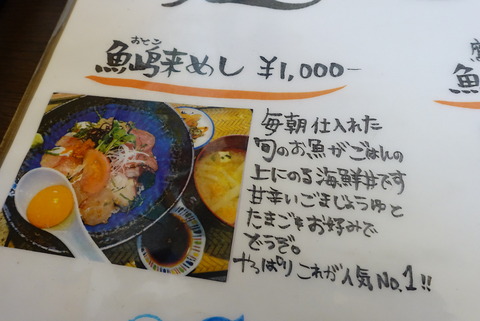 おとこ
魚嶋来めし ¥1,000-
毎朝仕入れた
旬のお魚がごはんの
上にのる海鮮丼です
甘辛いごましょうゆと
たまごをお好みで
どうぞ。
やっぱりこれが人気No.1!!
魚